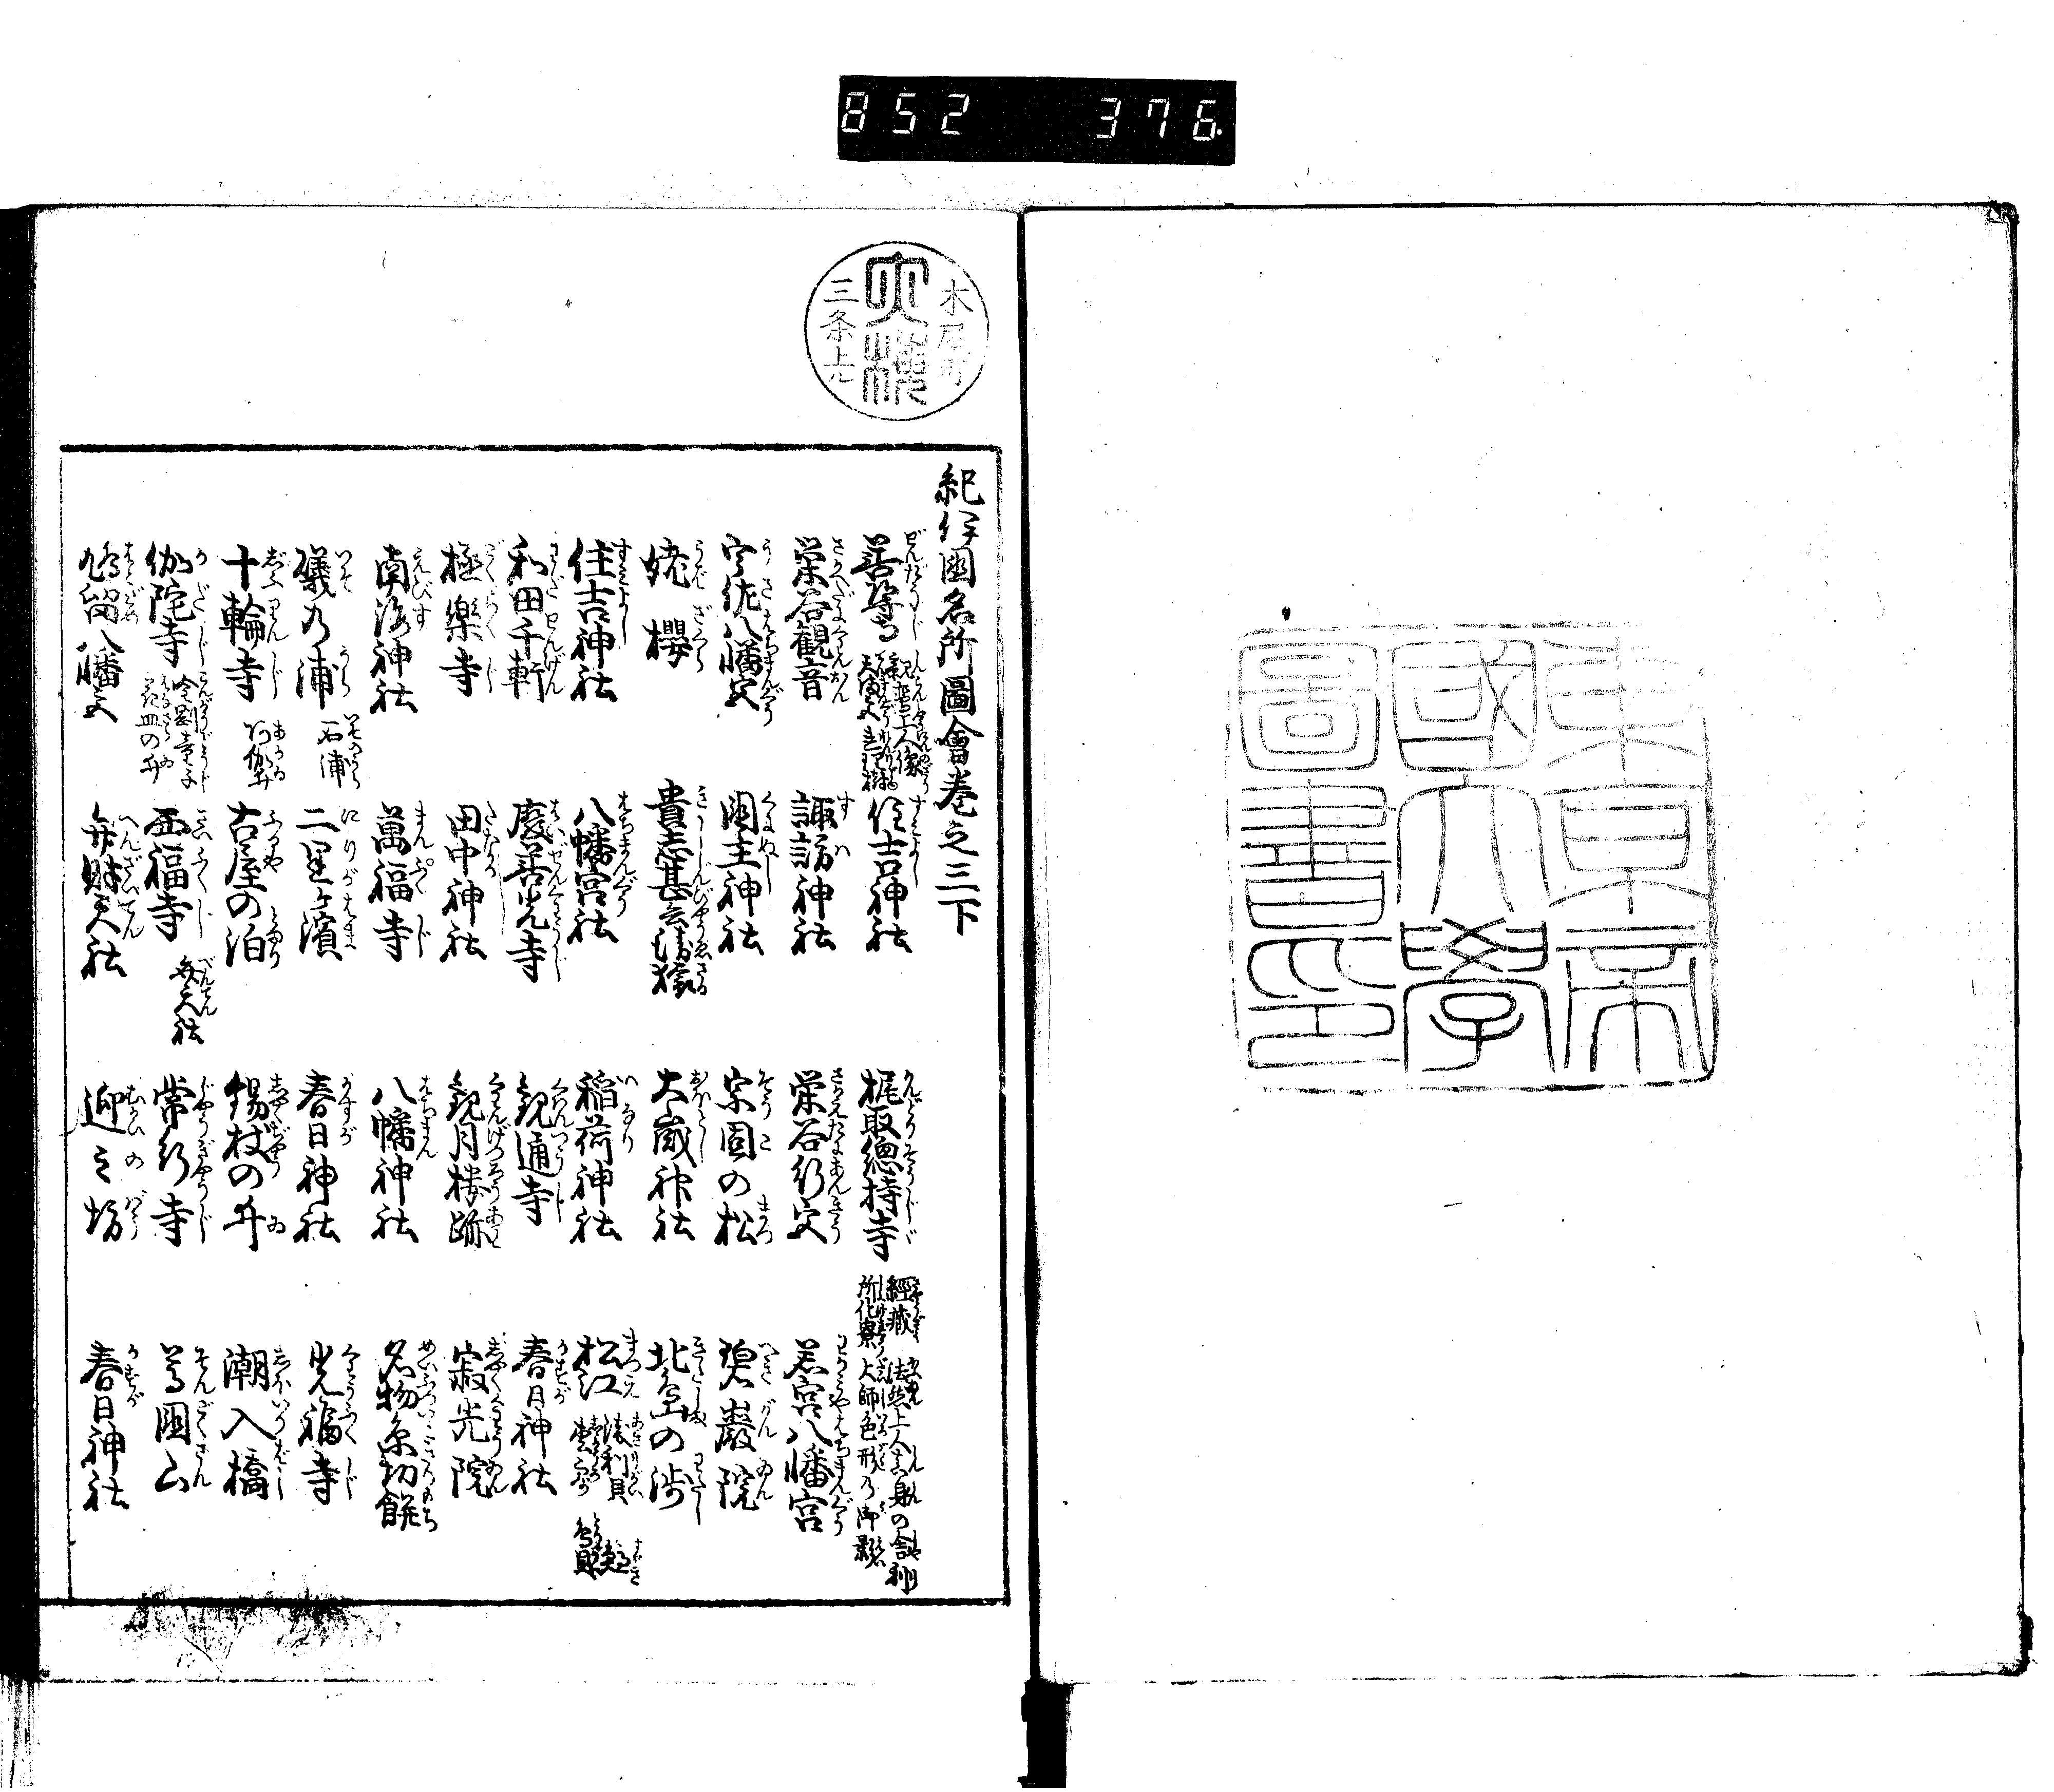 852 376
東京帝
國大學
圖書印
木屋町
大惣
三条上ル
紀伊國名所圖會巻之三下
善導寺 親鸞上人像 天満宮 連理樹 住吉神社 梶取總持寺 經藏 法然上人真身の舎利 所化寮 大師色形乃御影
栄谷観音 諏訪神社 栄谷行宮 若宮八幡宮
宇佐八幡宮 国主神社 宗固の松 碧巌院
姥櫻 貴志甚兵衛猿 大歳神社 北島の渉
住吉神社 八幡宮社 稲荷神社 松江 浅利貝
和田千軒 廢善光寺 観通寺 春日神社
極樂寺 田中神社 観月楼跡 寂光院
南海神社 萬福寺 八幡神社 名物糸切餅
礒乃浦 石浦 二里ヶ濱 春日神社 光福寺
十輪寺 阿伽井 古屋の泊 錫杖の井 潮入橋
伽陀寺 金剛童子 花皿の井 西福寺 弁天社 常行寺 尊國山
鳩留八幡宮 弁財天社 迎之坊 春日神社